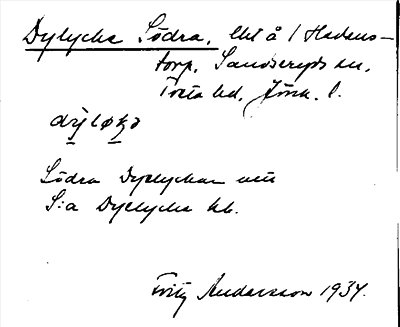 Dylycke Södra, lht å 1 Hedens-
torp, Sandseryds sn,
Tveta hd. Jönk. l.
dy̱lø̱ḵə
Södra Dylyckan
S:a Dylycke
Fritz Andersson 1934.